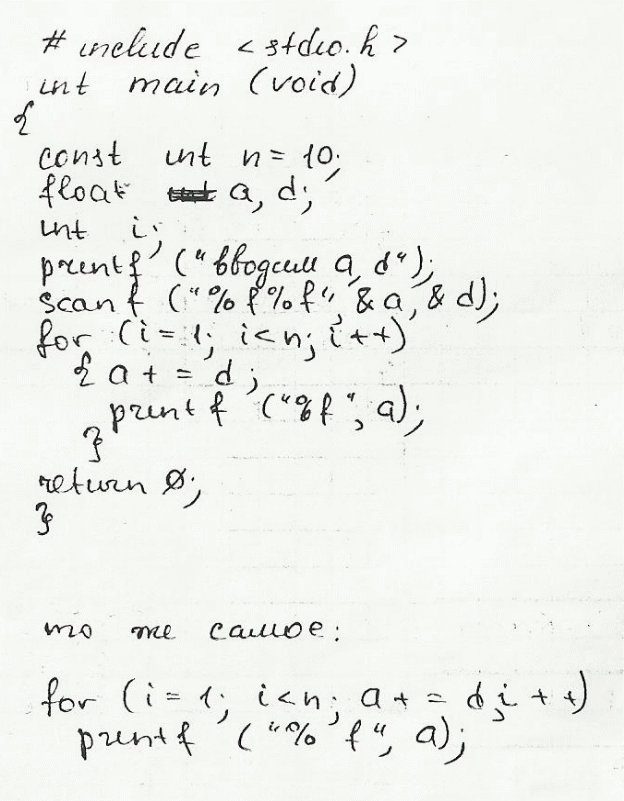 # include <stdio.h>
int main (void)
{
const int n = 10;
float a, d;
int i;
printf ("вводим a, d");
scanf ("%f%f", &a, &d);
for (i = 1; i<n; i++)
{ a += d;
printf ("%f", a);
}
return 0;
}
то же самое:
for (i = 1; i<n; a += d, i++)
printf ("% f", a);